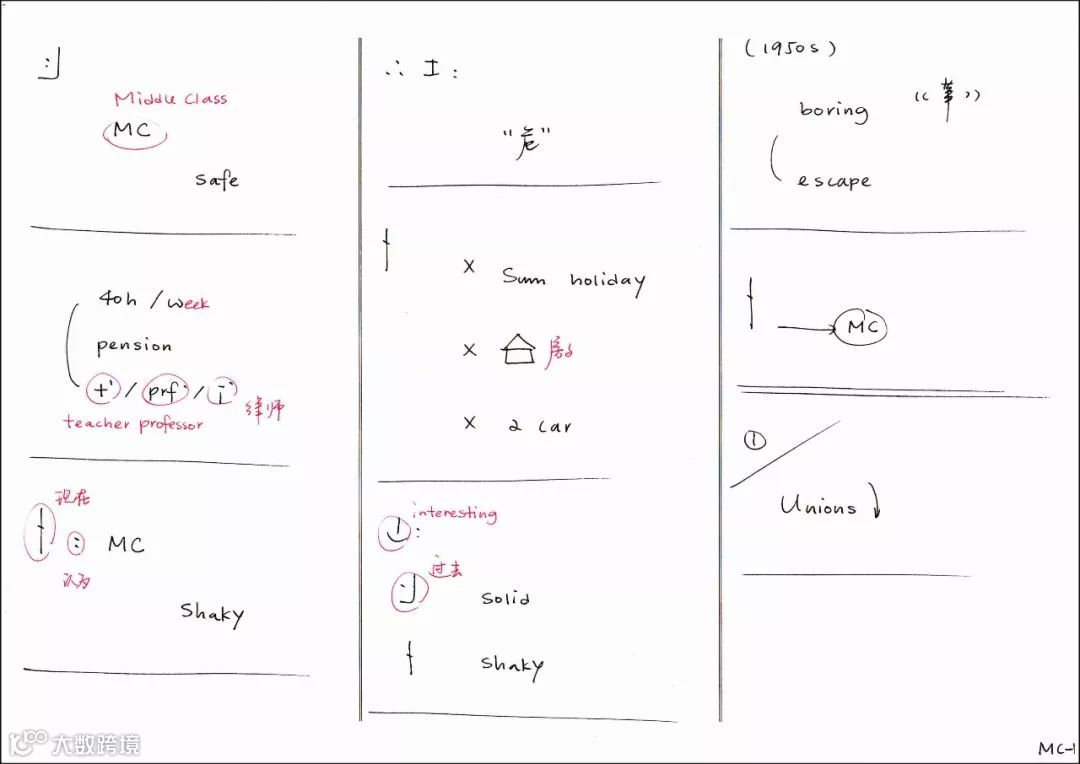 Middle Class
MC
safe
40h / week
pension
t' / prf' / i' 律师
teacher professor
现在
: MC
认为
shaky
∴ 工 :
"危"
x Sum holiday
x 房子
x 2 car
interesting
:
过去
solid
shaky
(1950s)
boring
escape
MC
①
Unions ↓
MC-1
大数跨境